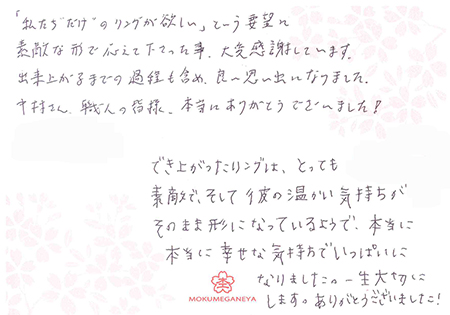 「私たち"だけ"のリングが欲しい」という要望に
素敵な形で応えて下さった事、大変感謝しています。
出来上がるまでの過程も含め、良い思い出になりました。
中村さん、職人の皆様、本当にありがとうございました!
でき上がったリングは、とっても
素敵で、そして彼の温かい気持ちが
そのまま形になっているようで、本当に
本当に幸せな気持ちでいっぱいに
なりました。一生大切に
します。ありがとうございました!
MOKUMEGANEYA